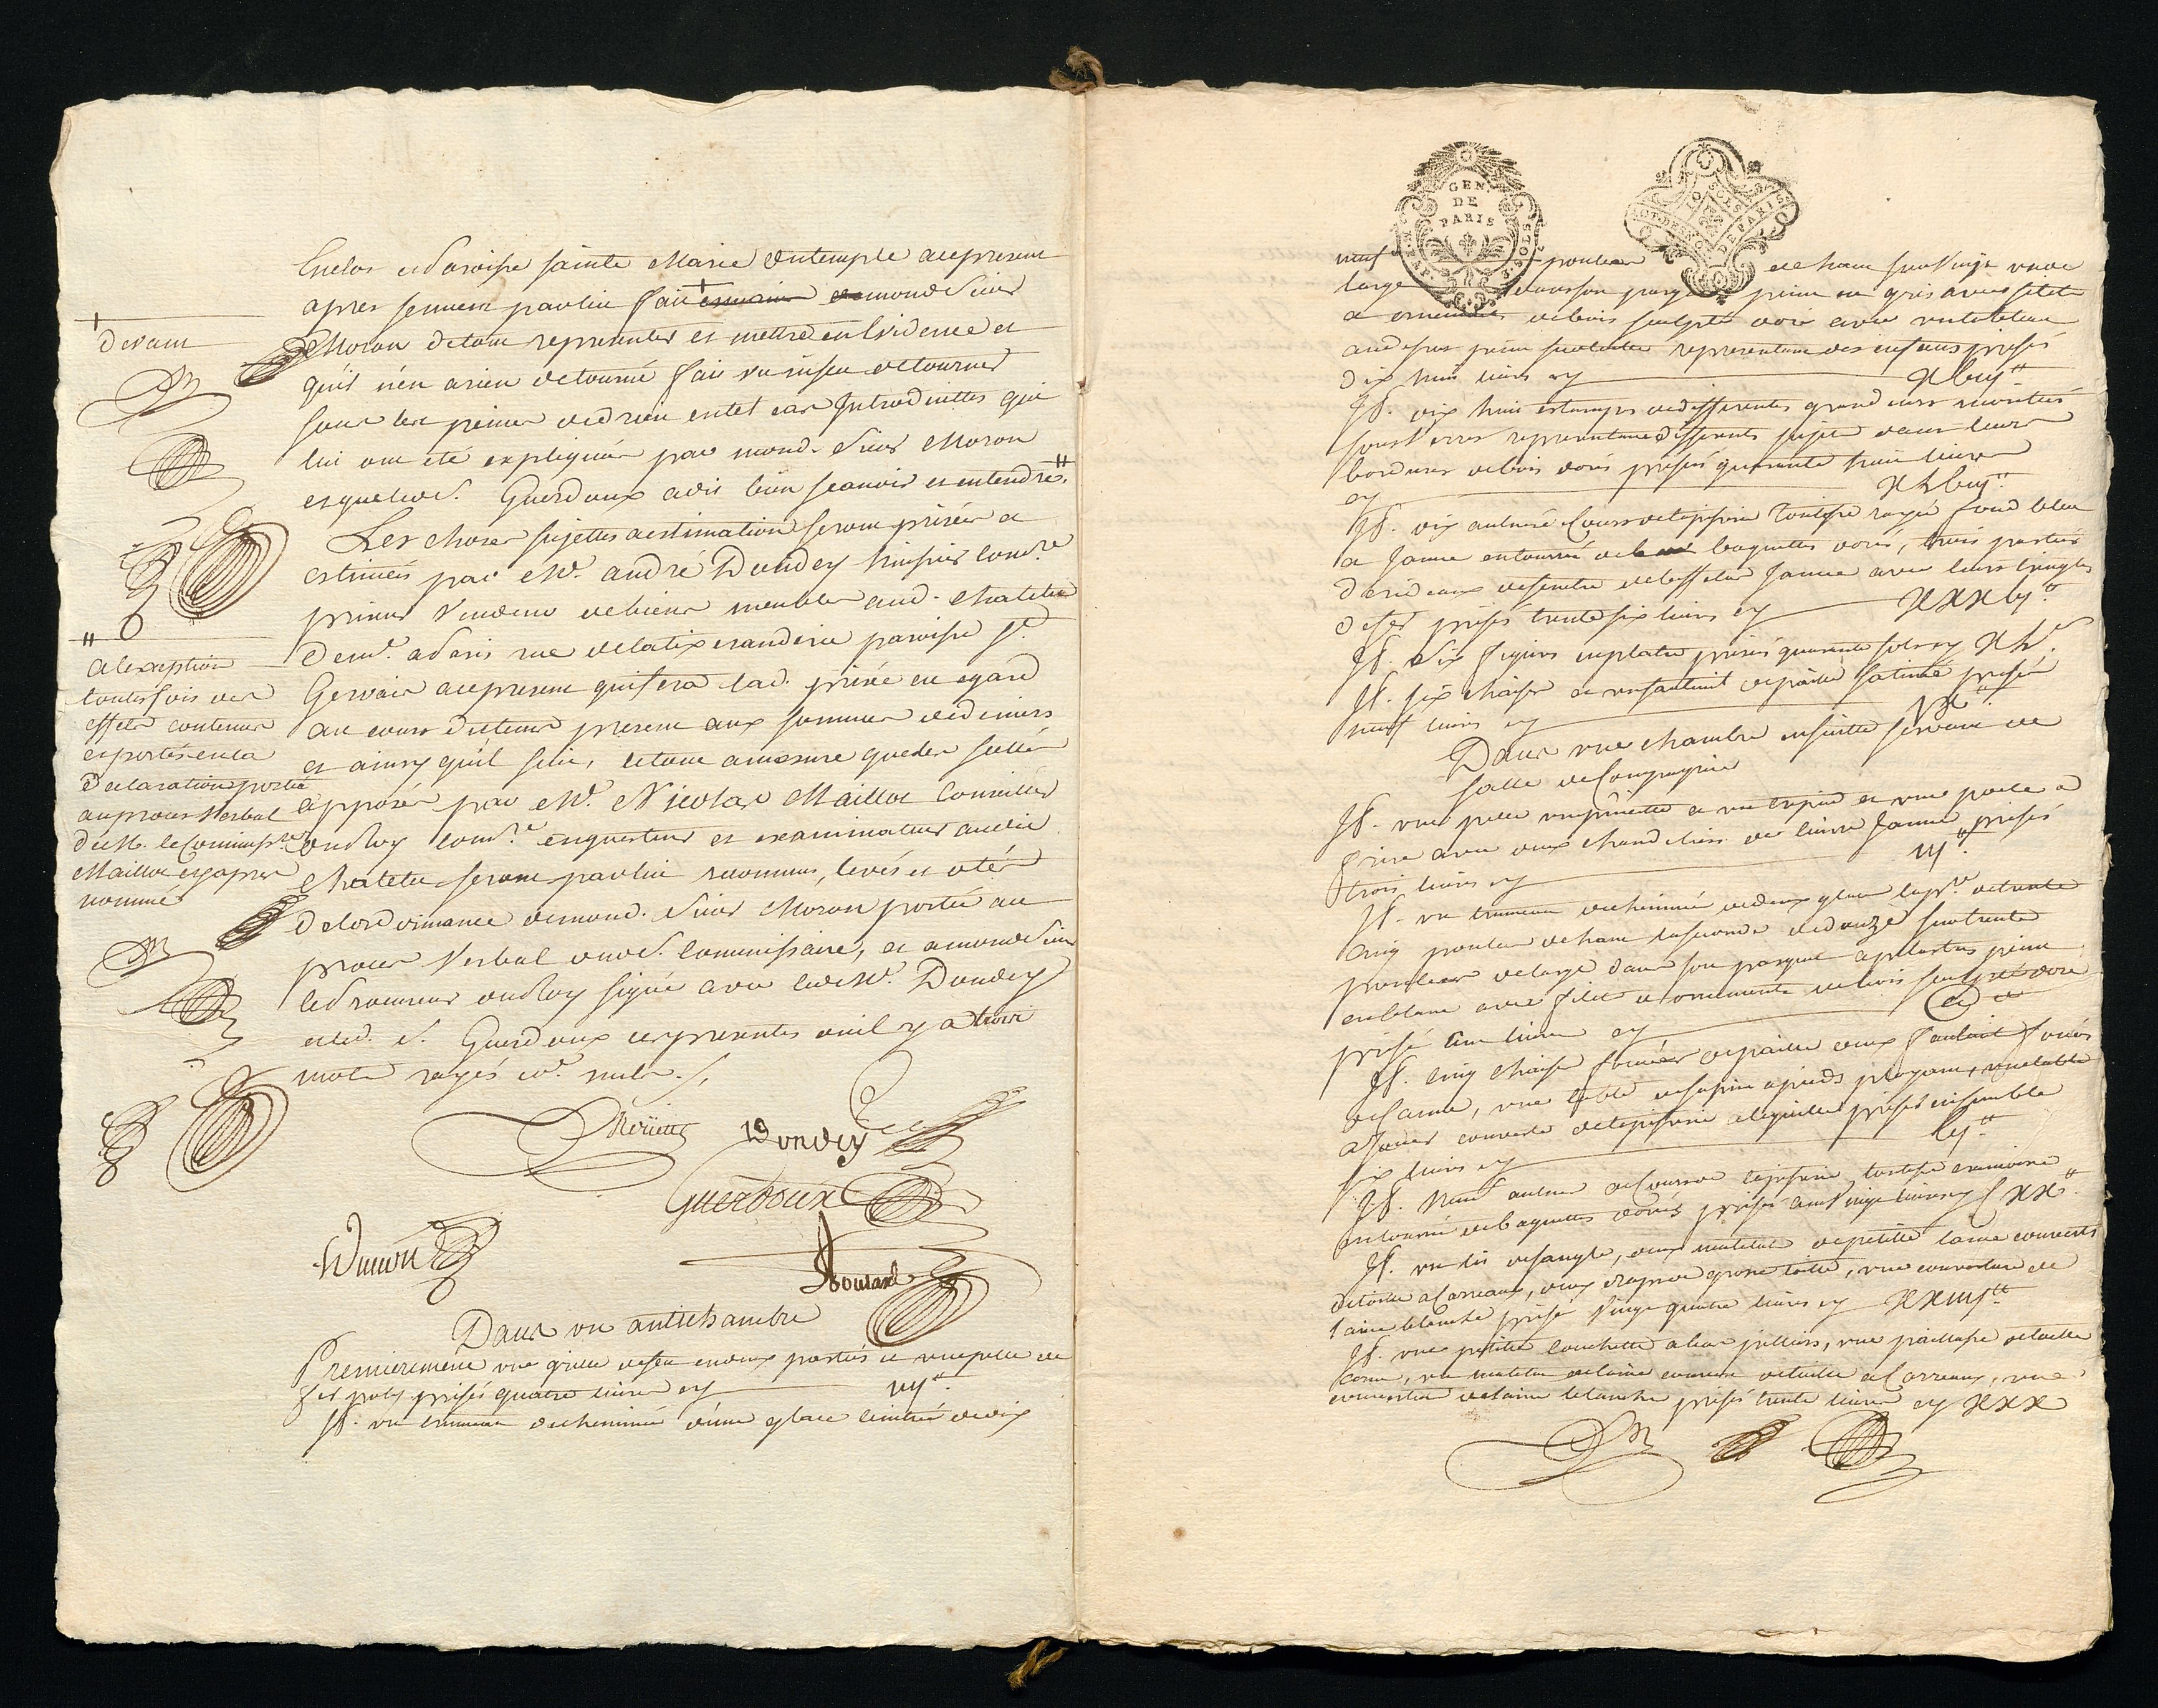 Enclos et paroisse sainte Marie du temple a ce present
apres serment par lui fait es mains de mond. Sieur
Moron de tout representer et mettre en Evidence et
qu'il n'en a rien detourné fait vu ni sçu detourner
sous les peines de droit en tel cas Introduittes qui
lui ont été expliquées par mond. Sieur Moron
et que led. S. Guerdoux a dit bien sçavoir et entendre.
Les choses sujettes a estimation seront prisées et
estimées par Me. andré Dondey huissier Comre.
priseur Vendeur de biens meubles aud. Chatelet
demt. a Paris rue de la tixeranderie paroisse St.
Gervais a ce present qui fera lad. prisée eu egard
au cours du tems present aux sommes de deniers
et ainsy qu'il suit, le tout a mesure que les scellés
apposés par Me. Nicolas Maillot Conseiller
du Roy Comre. enquesteur et examinateur audit
Chatelet seront par lui reconnus, levés et otés
de l'ordonnance de mond. Sieur Moron portée au
proces Verbal dud. S. Commissaire, et a mond Sieur
le Procureur du Roy signé avec led. Me. Dondey
et led. S. Guerdoux ces presentes ou il y a trois
mots rayés nuls ./.
devant
a l'exception
touttefois des
effets contenus
et portés en la
Declaration portée
au proces Verbal
du M. le Commissre.
Maillot cy apres
nommé
Dondey
Guerdoux
Dans une antichambre
Premierement une grille de feu en deux parties et une pelle de
fer poly prisés quatre livres cy
It. un trumeau de cheminée d'une glace ceintrée de dix
GEN.
DE
PARIS
neuf pouces de haut sur Vingt un de
large dans son parquet peint en gris avec filets
et ornements de bois sculpté doré avec un tableau
au dessus peint sur toille representant des enfans prisés
dix huit livres cy XVIII"
It. dix huit estampes de differentes grandeurs montées
sous Verres representant differents sujets dans leurs
bordures de bois doré prisés quarante huit livres
cy XLVIII"
It. dix aulnes de Cours de tapisserie toutisse rayé fond bleu
et Jaune entourrée de baguettes dorés, trois parties
de rideaux de fenetre de taffetas Jaune avec leurs tringles
de fer prisés trente six livres cy XXXVI"
It. Six figures en platre prisés quarante sols cy XLs.
It. six chaises et un fauteuil de paille satinée prisés
neuf livres cy IX"
Dans une chambre ensuitte servant de
salle de Compagnie
It. une pelle une pincette et un trepied et une poele a
frire avec deux chandeliers de cuivre Jaune prisés
trois livres cy III"
It. un trumeau de cheminée de deux glaces la pre. de trente
cinq pouces de haut la seconde de douze sur trente
pouces de large dans son parquet a pilastres peint
en blanc avec filets et ornements de bois sculpté doré
prisé cent livres cy C"
It. cinq chaises foncées de paille deux fauteuils foncés
de Canne, une table de sapin a pieds pliants, une table
a Jouer couverte de tapisserie a l'eguille prisés ensemble
six livres cy VI"
It. Neuf aulnes de Cours de tapisserie toutisse cramoisie
entourré de baguettes dorés prisés cent vingt livres cy CXX"
It. un lit de sangle, deux matelats de petitte laine couverts
de toille a Carreaux, deux draps de grosse toille, une couverture de
laine blanche prisé Vingt quatre livres cy XXIIII"
It. une petitte couchette a bas pilliers, une paillasse de toille
un matelas de laine couvert de toille a Carreaux, une
couverture de laine blanche prisés trente livres cy XXX